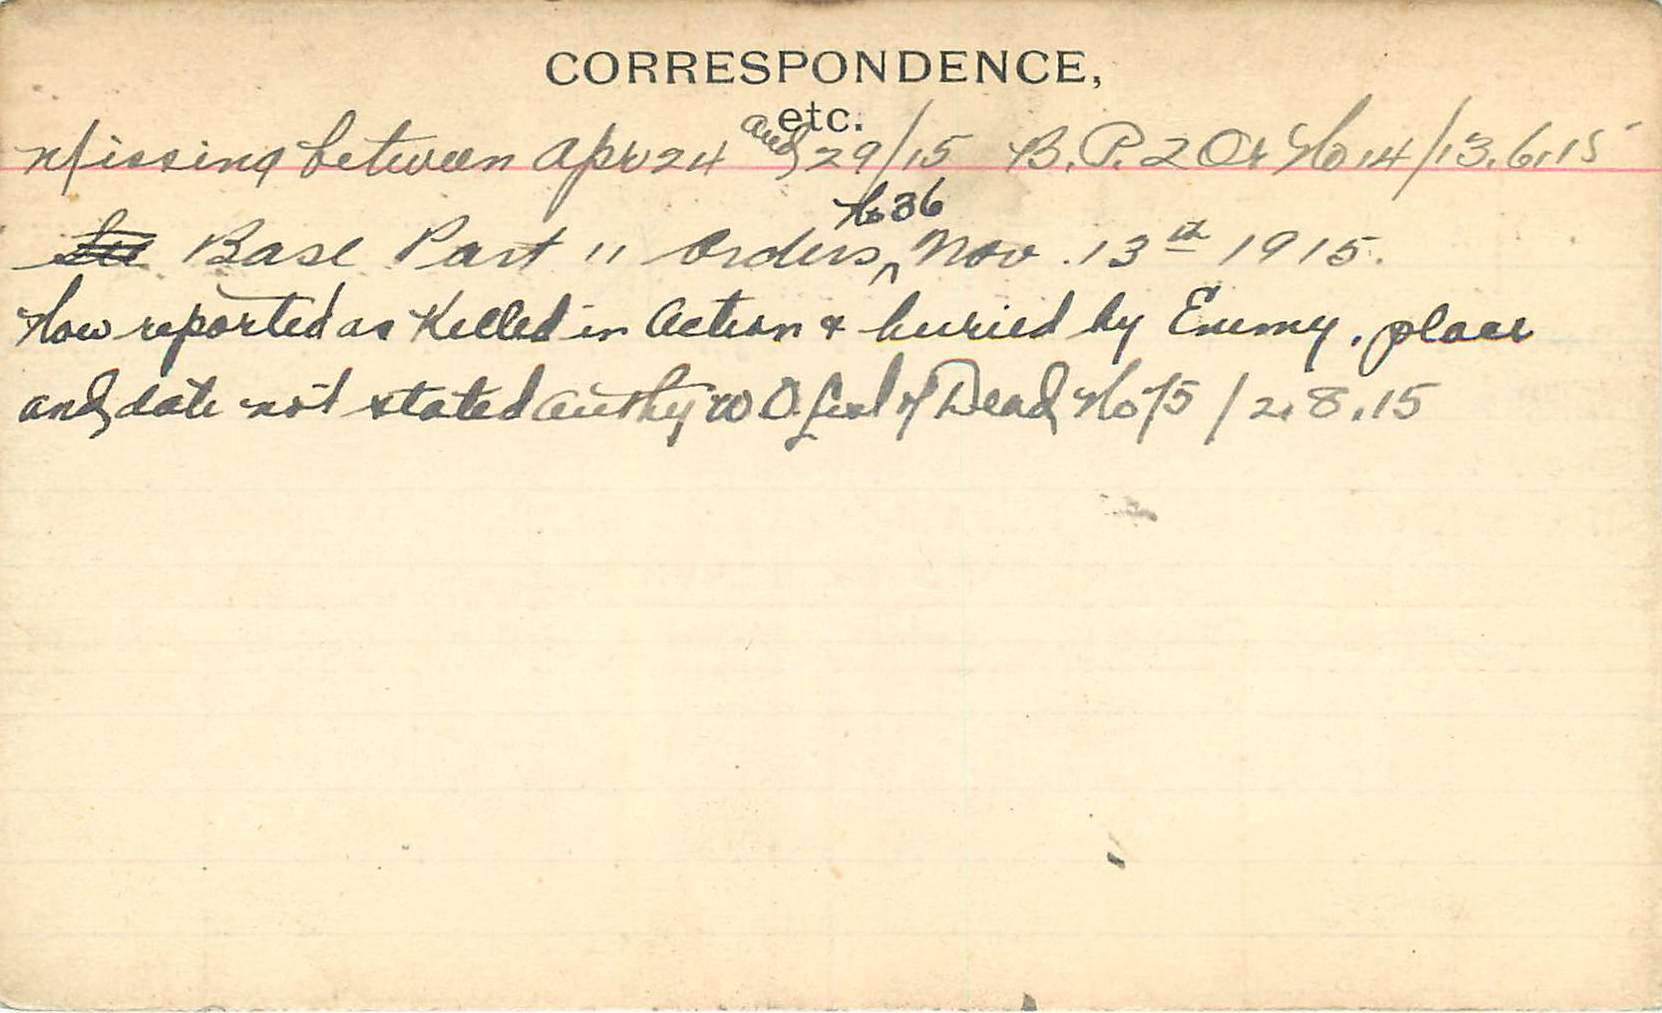 CORRESPONDENCE,
etc.
Missing between Apr 24 and 29/15 B.P.2 Or No 14/13.6.15
Base Part 11 Orders No 36 Nov. 13th 1915.
Now reported as Killed in Action & buried by Enemy, place
and date not stated Authy W O. List of Dead No 75 / 2.8.15